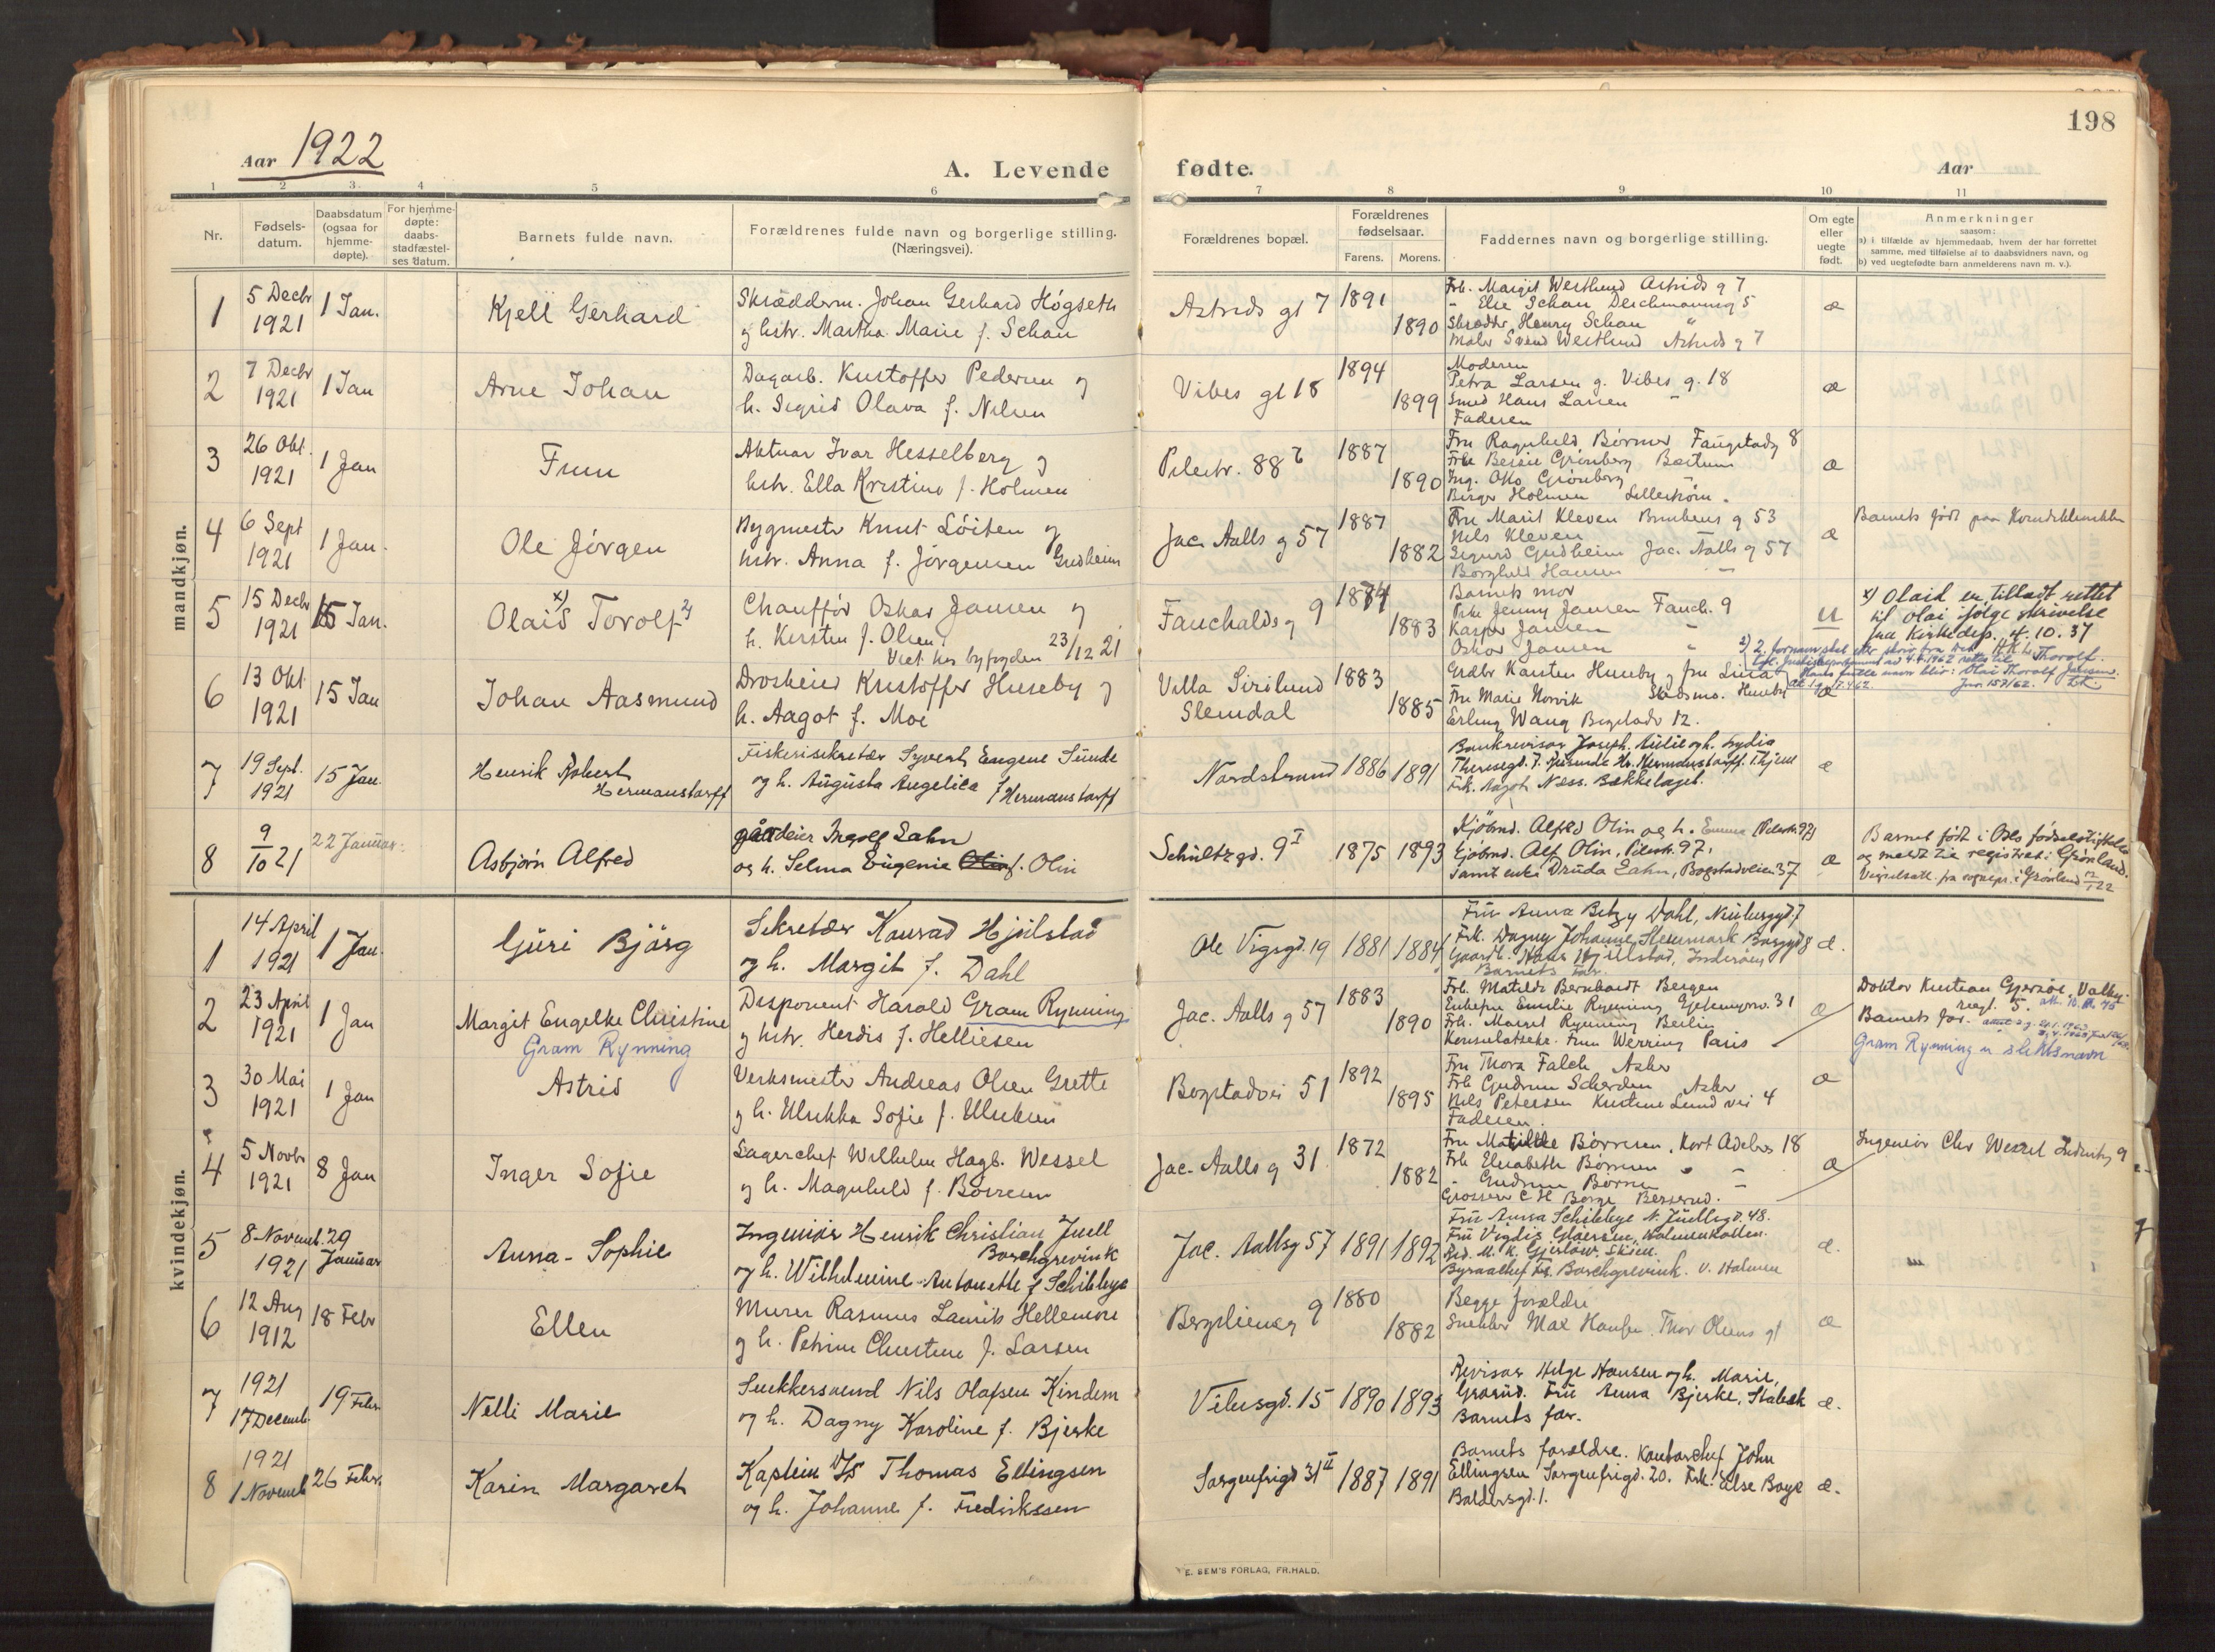 198
Aar 1922
A. Levende fødte.
Aar
1 2 3 4 5 6 7 8 9 10 11
Nr.
Fødsels-
datum.
Daabsdatum
(ogsaa for
hjemme-
døpte).
For hjemme-
døpte:
daabs-
stadfæstel-
ses datum.
Barnets fulde navn.
Forældrenes fulde navn og borgerlige stilling.
(Næringsvei).
Forældrenes bopæl.
Forældrenes
fødselsaar.
Farens. Morens.
Faddernes navn og borgerlige stilling.
Om egte
eller
uegte
født.
Anmerkninger
saasom:
a) i tilfælde av hjemmedaab, hvem der har forrettet
samme, med tilføielse af to daabsvidners navn, og
b) ved uegtefødte barn anmelderens navn m. v.).
mandkjøn.
1
5 Decbr
1921
1 Jan.
Kjell Gerhard
Skræddern. Johan Gerhard Høgseth
og hstr. Martha Marie f. Schau
Astrids gt 7
1891
1890
Frk. Margit Westlund Astrids g 7
" Else Schau Deichmannsg 5
Skrædder Henry Schau "
Maler Svend Westlund Astrids g 7
æ
2
7 Decbr
1921
1 Jan
Arne Johan
Dagarb. Kristoffer Pedersen og
h. Sigrid Olava f. Nilsen
Vibes gt 18
1894
1899
Moderen
Petra Larsen g. Vibes g. 18
Smed Hans Larsen "
Faderen
æ
3
26 Okt.
1921
1 Jan
Finn
Aktuar Ivar Hesselberg og
hstr. Ella Kristine f. Holmen
Pilestr. 88
1887
1890
Fru Ragnhild Børmer Faugstadg 8
Frk Bessie Grønberg Bærum
Ing. Otto Grønberg "
Birger Holmen Lillestrøm.
æ
4
6 Sept
1921
1 Jan.
Ole Jørgen
Bygmester Knut Løiten og
hstr. Anna f. Jørgensen Gudheim
Jac. Aalls g 57
1887
1882
Fru Marit Kleven g 53
Nils Kleven
Sigurd Gudheim Jac. Aalls g 57
Borghild Hansen "
æ
Barnets født paa Kvindeklinikken
5
15 Decbr
1921
15 Jan.
Olais x) Torolf 2)
Chauffør Oskar Jansen og
h. Kirsten f. Olsen.
Viet hos byfogden 23/12 21
Fauchalds g 9
1874
1883
Barnets mor
Jenny Jansen Fauch. 9
Kasper Jansen "
Oskar Jansen "
u
x) Olaid er tilladt rettet
til Olai ifølge skrivelse
fra Kirkedep. 4.10.37
2) 2. fornavn skal Thorolf.
4.4.1962 rettes til
Hans fulle navn blir: Olai Thorolf Jansen.
Jnr. 157/62.
6
13 Okt
1921
15 Jan
Johan Aasmund
Droskeeier Kristoffer Huseby og
h. Aagot f. Moe
Villa Sirilund
Slemdal
1883
1885
Grdbr Karsten Huseby og fru Lina
Fru Marie Norvik Skedsmo. Huseby
Erling Wang Bogstadv 12.
æ
7
19 Sept.
1921
15 Jan.
Henrik Robert
Hermanstorff
Fiskerisekretær Syvert Eugene Sunde
og h. Augusta Angelica f Hermanstorff
Nordstrand
1886 1891
Bankrevisor Joseph. og h. Lydia
Theresegd. 7. Hr. Hermanstorff. Thjem
Frk. Aagot Næss. Bækkelaget.
æ
8
9/10 21
22 Januar.
Asbjørn Alfred
gårdeier Ingolf Lahn
og h. Selma Eugenie Olin f. Olin
Schultzgd. 9 I
1875 1893
Kjøbmd. Alfred Olin og h. Emma (Pilestr. 97)
Kjøbmd. Alf Olin, Pilestr. 97,
samt enke Druda Lahn, Bogstadveien 37
æ
Barnet født i Oslo fødselsstiftelse
og meldt til registret i Grønland.
Vigselsatt. fra sognepr. i Grønland 12/1 22
kvindekjøn.
1
14 April
1921
1 Jan.
Guri Bjørg
Sekretær Konrad Hjulstad
og h. Margit f. Dahl
Ole Vigsgd. 19
1881 1884
Fru Anna Betzy Dahl, Neubergd. 7
Frk. Dagny Johanne Stenmark Borggd 8
Gaardb. Hans Hjulstad, Inderøen
Barnets far.
æ.
2
23 April
1921
1 Jan
Margit Engelke Christine
Gram Rynning
Disponent Harald Gram Rynning
og hstr. Herdis f. Helliesen
Jac. Aalls g 57
1883
1890
Frk. Matilde Bernhardt Bergen
Enkefru Emilie Rynning 31
Frk. Margit Rynning Berlin
Konsulatsekr. Finn Werring Paris
æ
Doktor Kristian Gjersøe, Valky.
Barnets far.
Gram Rynning er slektsnavn
3
30 Mai
1921
1 Jan
Astrid
Verksmester Andreas Olsen Grette
og h. Ulrikka Sofie f. Ulriksen
Bogstadvei 51
1892
1895
Fru Thora Falch Asker
Frk Gudrun Scherden Asker
Nils Petersen Kristine Lund vei 4
Faderen.
æ
4
5 Novbr
1921
8 Jan
Inger Sofie
Lagerchef Wilhelm Hagb. Wessel
og h. Magnhild f. Børresen
Jac. Aalls g 31
1872
1882
Fru Matilde Børresen, Kort Adelers 18
Frk Elisabeth Børresen " "
" Gudrun Børresen "
Grosserer C H Borge Besserud.
æ
Ingeniør Chr Wessel 9
5
8 Novemb.
1921
29
Januar
Anna-Sophie
Ingeniør Henrik Christian Juell
Borchgrevink
og h. Wilhelmine Antonette f Schibbye
Jac. Aallsg 57
1891 1892
Fru Anna Schibbye N. Juellsgd. 48.
Fru Vigdis Gløersen, Holmenkollen.
Red. M. K. Gjerløw. Skien.
Byraachef Fr. Borchgrevink. V. Holmen
æ.
6
12 Aug
1912
18 Febr
Ellen
Murer Rasmus Laurits Hellemore
og h. Petrine Christine f. Larsen
Bergslieng 9
1880
1882
Begge forældre
Snekker Max Thor Olsens gt
æ
7
1921
17 Decemb.
19 Febr.
Nelli Marie
Snekkersvend Nils Olafsen Kindem
og h. Dagny Karoline f. Bjerke
Vibesgd. 15
1890 1893
Revisor Helge Hansen og h. Marie,
Grorud. Fru Anna Bjerke, Stabæk
Barnets far.
æ.
8
1921
1 Novemb
26 Febr.
Karin Margareth
Kaptein D/S Thomas Ellingsen
og h. Johanne f. Fredrikssen
Sorgenfrigd 31 II
1887 1891
Barnets forældre. Kontorchef John
Ellingsen Sorgenfrigd. 20. Frk. Else Boye
Baldersgd. 1.
æ.
E. SEM'S FORLAG, FR.HALD.